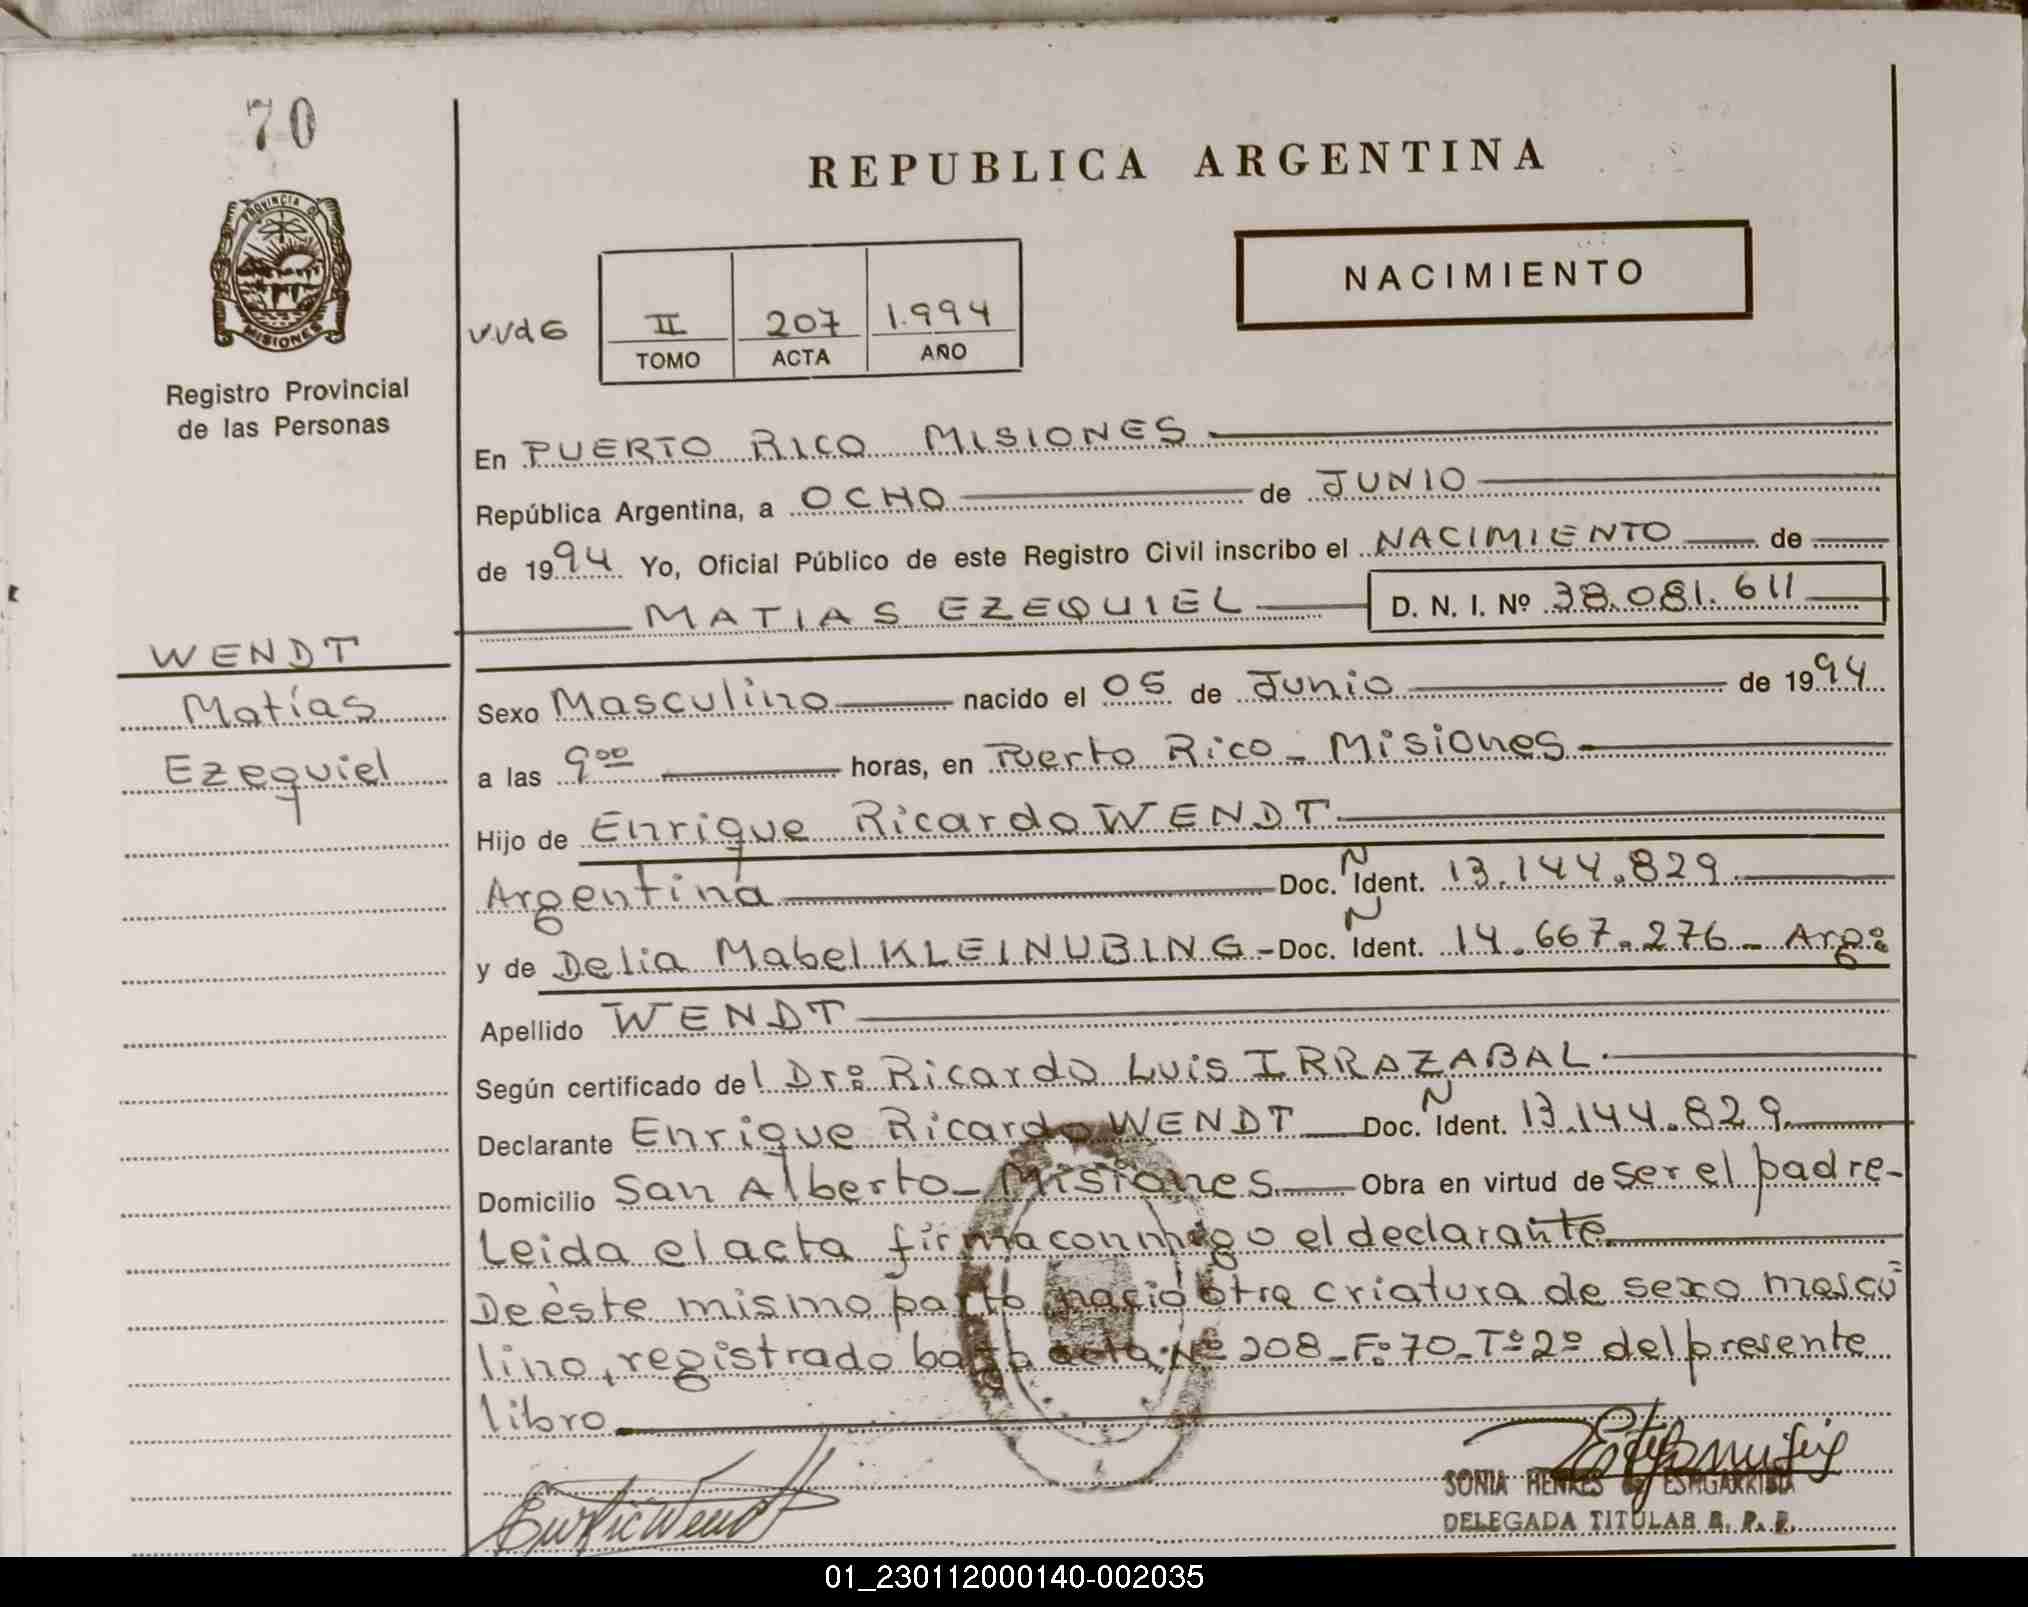 70
REPUBLICA ARGENTINA
PROVINCIA DE
MISIONES
NACIMIENTO
II 207 1.994
TOMO ACTA AÑO
Registro Provincial
de las Personas
En PUERTO RICO MISIONES
República Argentina, a OCHO de JUNIO
de 1994 Yo, Oficial Público de este Registro Civil inscribo el NACIMIENTO de
MATIAS EZEQUIEL D. N. I. Nº 38.081.611
WENDT
Matías
Ezequiel
Sexo Masculino nacido el 05 de Junio de 1994
a las 9 00 horas, en Puerto Rico - Misiones
Hijo de Enrique Ricardo WENDT
Argentina Doc. Ñ Ident. 13.144.829
y de Delia Mabel KLEINUBING - Doc. Ñ Ident. 14.667.276 - Argº
Apellido WENDT
Según certificado del Drº Ricardo Luis IRRAZABAL
Declarante Enrique Ricardo WENDT Doc. Ñ Ident. 13.144.829
Domicilio San Alberto - Misiones Obra en virtud de ser el padre-
Leida el acta firma conmigo el declarante
De éste mismo parto nació otra criatura de sexo mascu
lino, registrado bajo acta Nº 208 - Fº 70 - Tº 2º del presente
libro
SONIA HENKES de
DELEGADA TITULAR R. P. P.
01_230112000140-002035